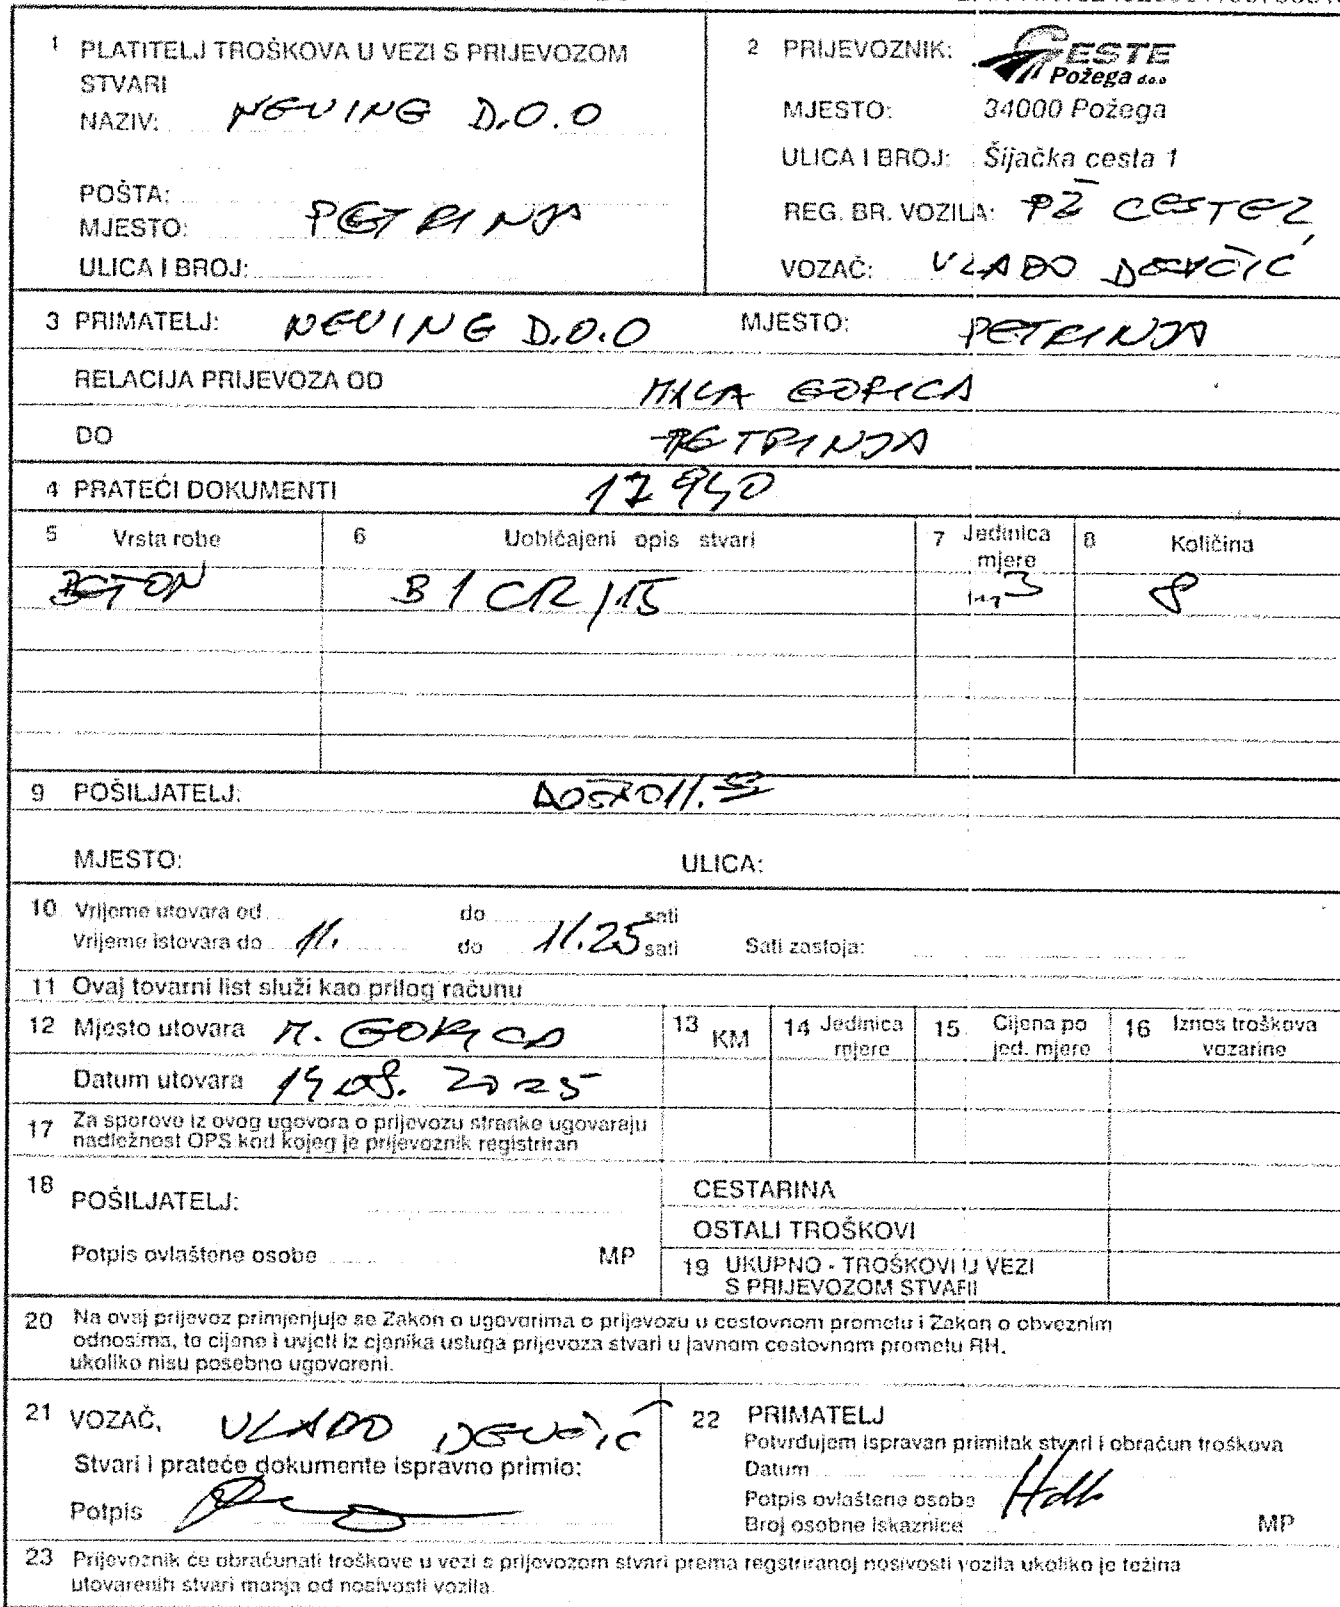 1 PLATITELJ TROŠKOVA U VEZI S PRIJEVOZOM
STVARI
NAZIV: NEVING D.O.O
POŠTA:
MJESTO: PETRINJA
ULICA I BROJ:
2 PRIJEVOZNIK: CESTE
Požega d.o.o
MJESTO: 34000 Požega
ULICA I BROJ: Šijačka cesta 1
REG. BR. VOZILA: PŽ CESTE2
VOZAČ: VLADO DEVČIĆ
3 PRIMATELJ: NEVING D.O.O MJESTO: PETRINJA
RELACIJA PRIJEVOZA OD MALA GORICA
DO PETRINJA
4 PRATEĆI DOKUMENTI 17940
5 Vrsta robe 6 Uobičajeni opis stvari 7 Jedinica mjere 8 Količina
BETON B1 CR/15 m3 8
9 POŠILJATELJ:
MJESTO: ULICA:
10 Vrijeme utovara od do sati
Vrijeme istovara do 11. do 11.25 sati Sati zastoja:
11 Ovaj tovarni list služi kao prilog računu
12 Mjesto utovara M. GORICA
Datum utovara 14 08. 2025
13 KM 14 Jedinica mjere 15 Cijena po jed. mjere 16 Iznos troškova vozarine
17 Za sporove iz ovog ugovora o prijevozu stranke ugovaraju
nadležnost OPS kod kojeg je prijevoznik registriran
18 POŠILJATELJ:
Potpis ovlaštene osobe MP
CESTARINA
OSTALI TROŠKOVI
19 UKUPNO - TROŠKOVI U VEZI
S PRIJEVOZOM STVARI
20 Na ovaj prijevoz primjenjuje se Zakon o ugovorima o prijevozu u cestovnom prometu i Zakon o obveznim
odnosima, te cijene i uvjeti iz cjenika usluga prijevoza stvari u javnom cestovnom prometu RH.
ukoliko nisu posebno ugovoreni.
21 VOZAČ, VLADO DEVČIĆ
Stvari i prateće dokumente ispravno primio:
Potpis
22 PRIMATELJ
Potvrđujem ispravan primitak stvari i obračun troškova
Datum
Potpis ovlaštene osobe
Broj osobne iskaznice MP
23 Prijevoznik će obračunati troškove u vezi s prijevozom stvari prema regstriranoj nosivosti vozila ukoliko je težina
utovarenih stvari manja od nosivosti vozila.